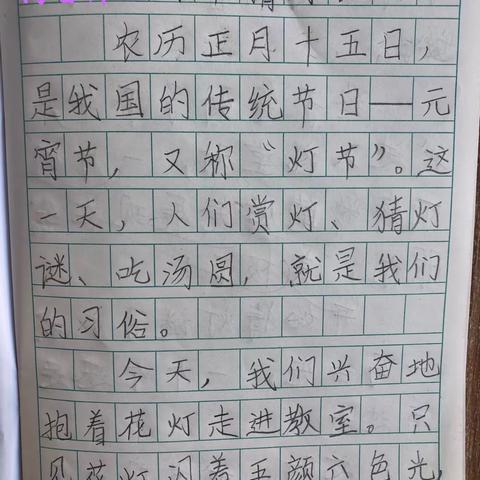 农历正月十五日，
是我国的传统节日——元
宵节，又称“灯节”。这
一天，人们赏灯、猜灯
谜、吃汤圆，就是我们
的习俗。
今天，我们兴奋地
抱着花灯走进教室。只
见花灯闪着五颜六色光，